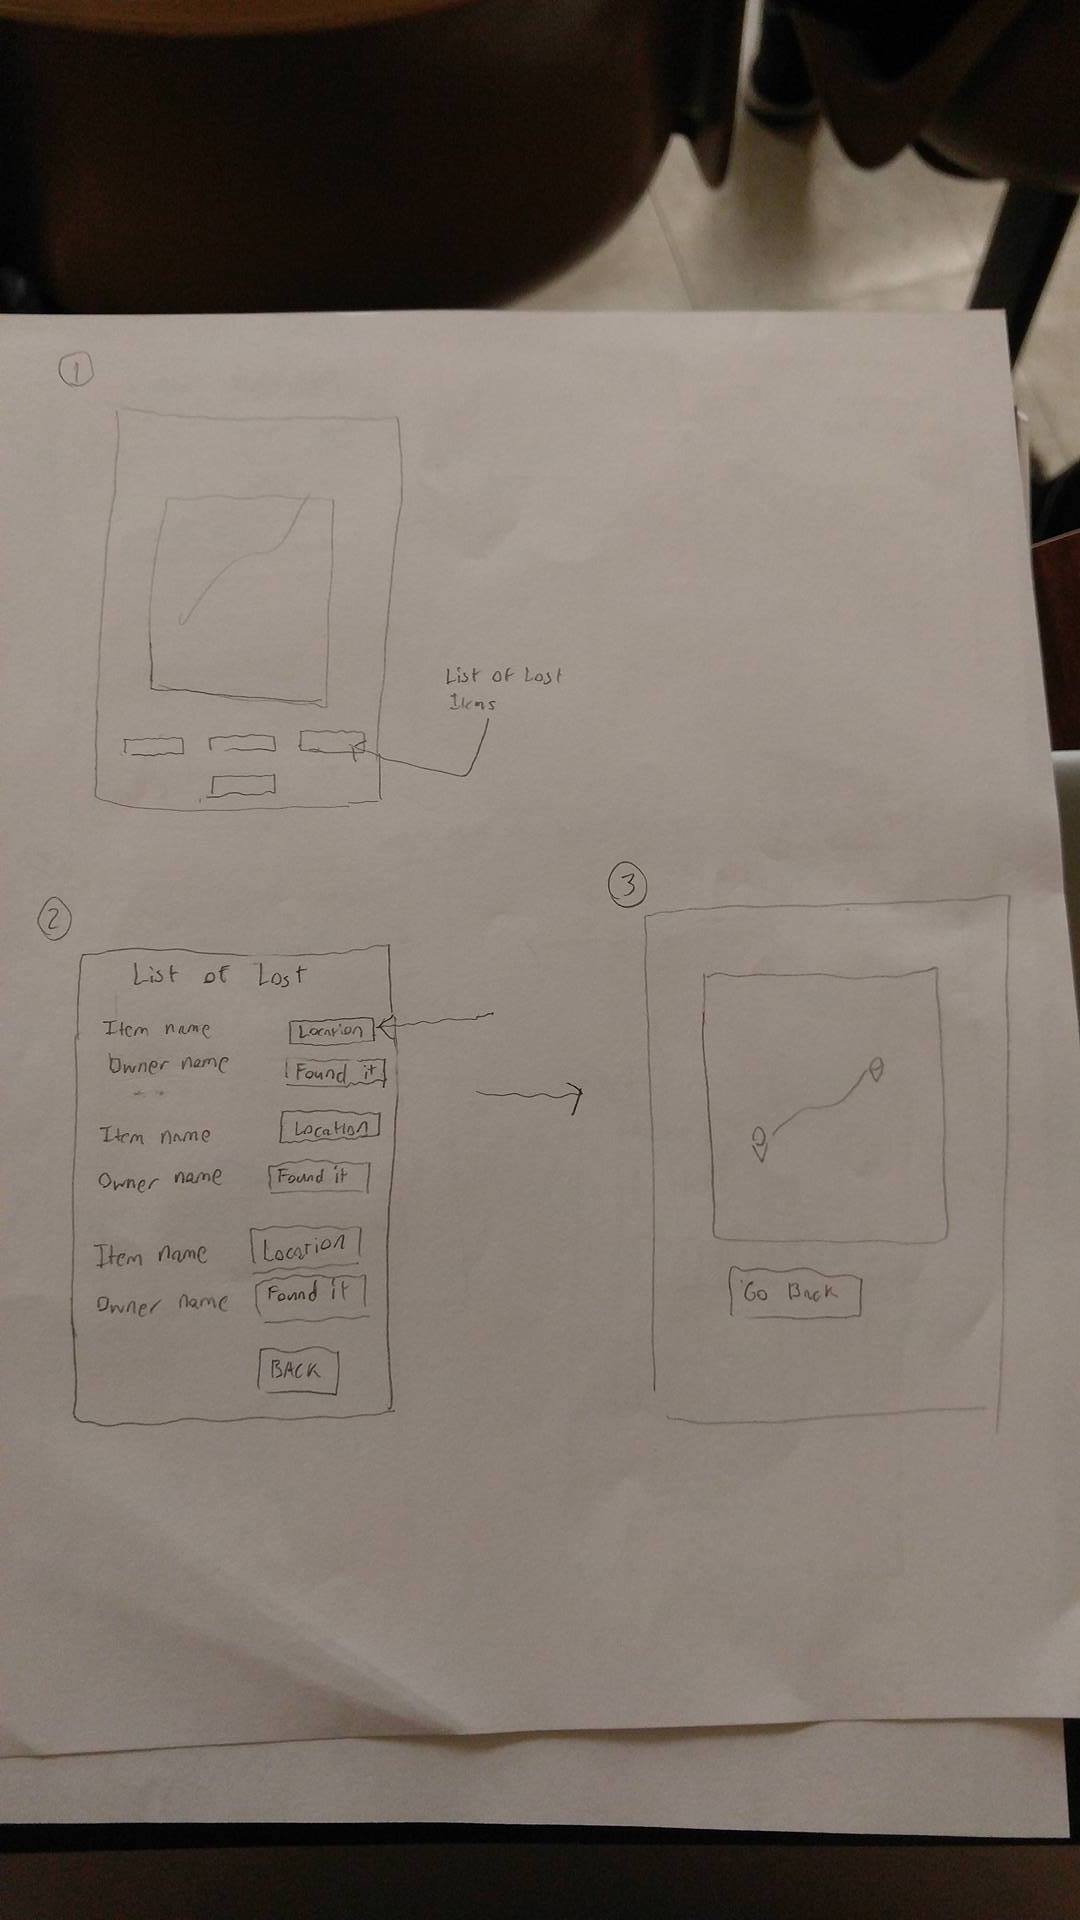 1
List of Lost
Items
2
List of Lost
Item name Location
Owner name Found it
Item name Location
Owner name Found it
Item name Location
Owner name Found it
BACK
3
Go Back